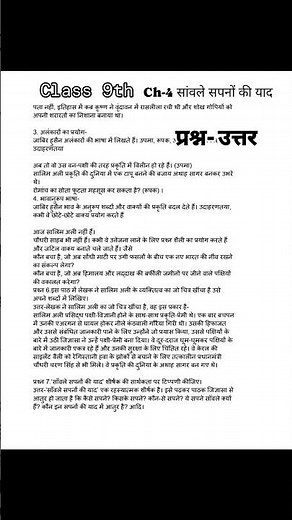 Class 9th Ch-4 सांवले सपनों की याद
पता नहीं, इतिहास में कब कृष्ण ने वृंदावन में रासलीला रची थी और शोख गोपियों को
अपनी शरारतों का निशाना बनाया था।
3. अलंकारों का प्रयोग-
जाबिर हुसैन अलंकारों की भाषा में लिखते हैं। उपमा, रूपक,
उदाहरणतया
प्रश्न-उत्तर
अब तो वो उस वन-पक्षी की तरह प्रकृति में विलीन हो रहे हैं। (उपमा)
सालिम अली प्रकृति की दुनिया में एक टापू बनने की बजाय अथाह सागर बनकर उभरे
थे।
रोमांच का सोता फूटता महसूस कर सकता है? (रूपक) ।
4. भावानुरूप भाषा-
जाबिर हुसैन भाव के अनुरूप शब्दों और वाक्यों की प्रकृति बदल देते हैं। उदाहरणतया,
कभी वे छोटे-छोटे वाक्य प्रयोग करते हैं
आज सालिम अली नहीं हैं।
चौधरी साहब भी नहीं हैं। कभी वे उत्तेजना लाने के लिए प्रश्न शैली का प्रयोग करते हैं
और जटिल वाक्य बनाते चले जाते हैं। जैसे
कौन बचा है, जो अब सोंधी माटी पर उगी फसलों के बीच एक नए भारत की नींव रखने
का संकल्प लेगा?
कौन बचा है, जो अब हिमालय और लद्दाख की बर्फीली जमीनों पर जीने वाले पक्षियों
की वकालत करेगा?
प्रश्न 6.इस पाठ में लेखक ने सालिम अली के व्यक्तित्व का जो चित्र खींचा है उसे
अपने शब्दों में लिखिए।
उत्तर-लेखक ने सालिम अली का जो चित्र खींचा है, वह इस प्रकार है-
सालिम अली प्रसिद्ध पक्षी-विज्ञानी होने के साथ-साथ प्रकृति प्रेमी थे। एक बार बचपन
में उनकी एअरगन से घायल होकर नीले कंठवाली गौरैया गिरी थी। उसकी हिफाजत
और उससे संबंधित जानकारी पाने के लिए उन्होंने जो प्रयास किया, उससे पक्षियों के
बारे में उठी जिज्ञासा ने उन्हें पक्षी-प्रेमी बना दिया। वे दूर-दराज घूम-घूमकर पक्षियों के
बारे में जानकारी एकत्र रहे हैं और उनकी सुरक्षा के लिए चिंतित रहे। वे केरल की
साइलेंट वैली को रेगिस्तानी हवा के झोंकों से बचाने के लिए तत्कालीन प्रधानमंत्री
चौधरी चरण सिंह से भी मिले। वे प्रकृति की दुनिया के अथाह सागर बन गए थे।
प्रश्न 7.'साँवले सपनों की याद' शीर्षक की सार्थकता पर टिप्पणी कीजिए।
उत्तर-'साँवले सपनों की याद' एक रहस्यात्मक शीर्षक है। इसे पढ़कर पाठक जिज्ञासा से
आतुर हो जाता है कि कैसे सपने? किसके सपने? कौन-से सपने? ये सपने साँवले क्यों
हैं? कौन इन सपनों की याद में आतुर है? आदि।